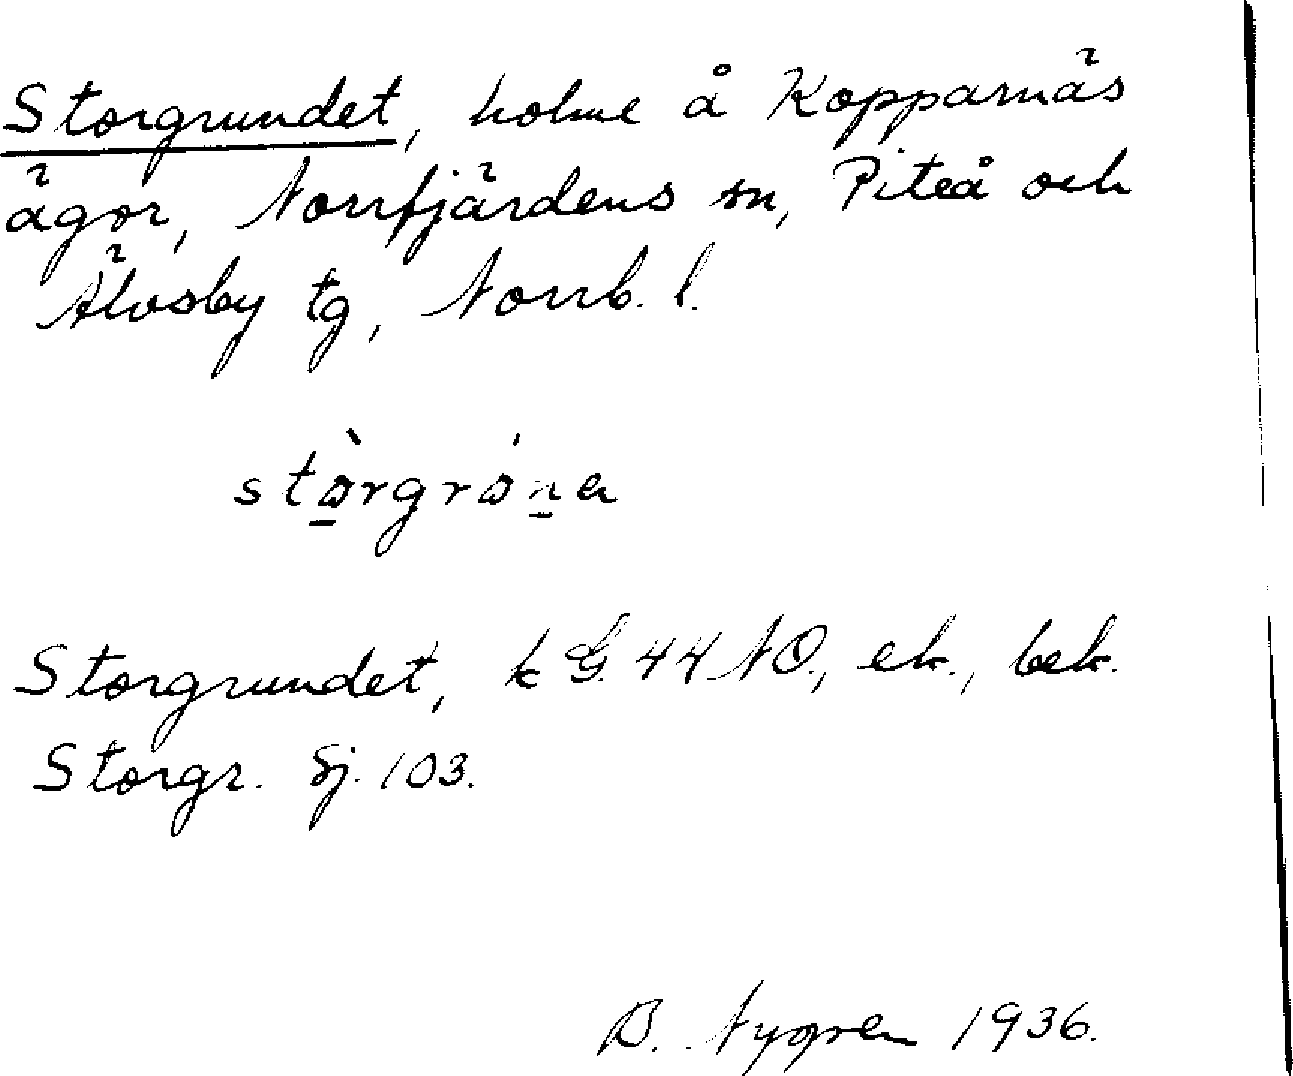 Storgrundet, holme å Kopparnäs
ägor, Norrfjärdens sn, Piteå och
Älvsby tg, Norrb. l.
stòrgróna
Storgrundet, k G. 44 NO., ek., bek.
Storgr. Sj. 103.
B. Nygren 1936.